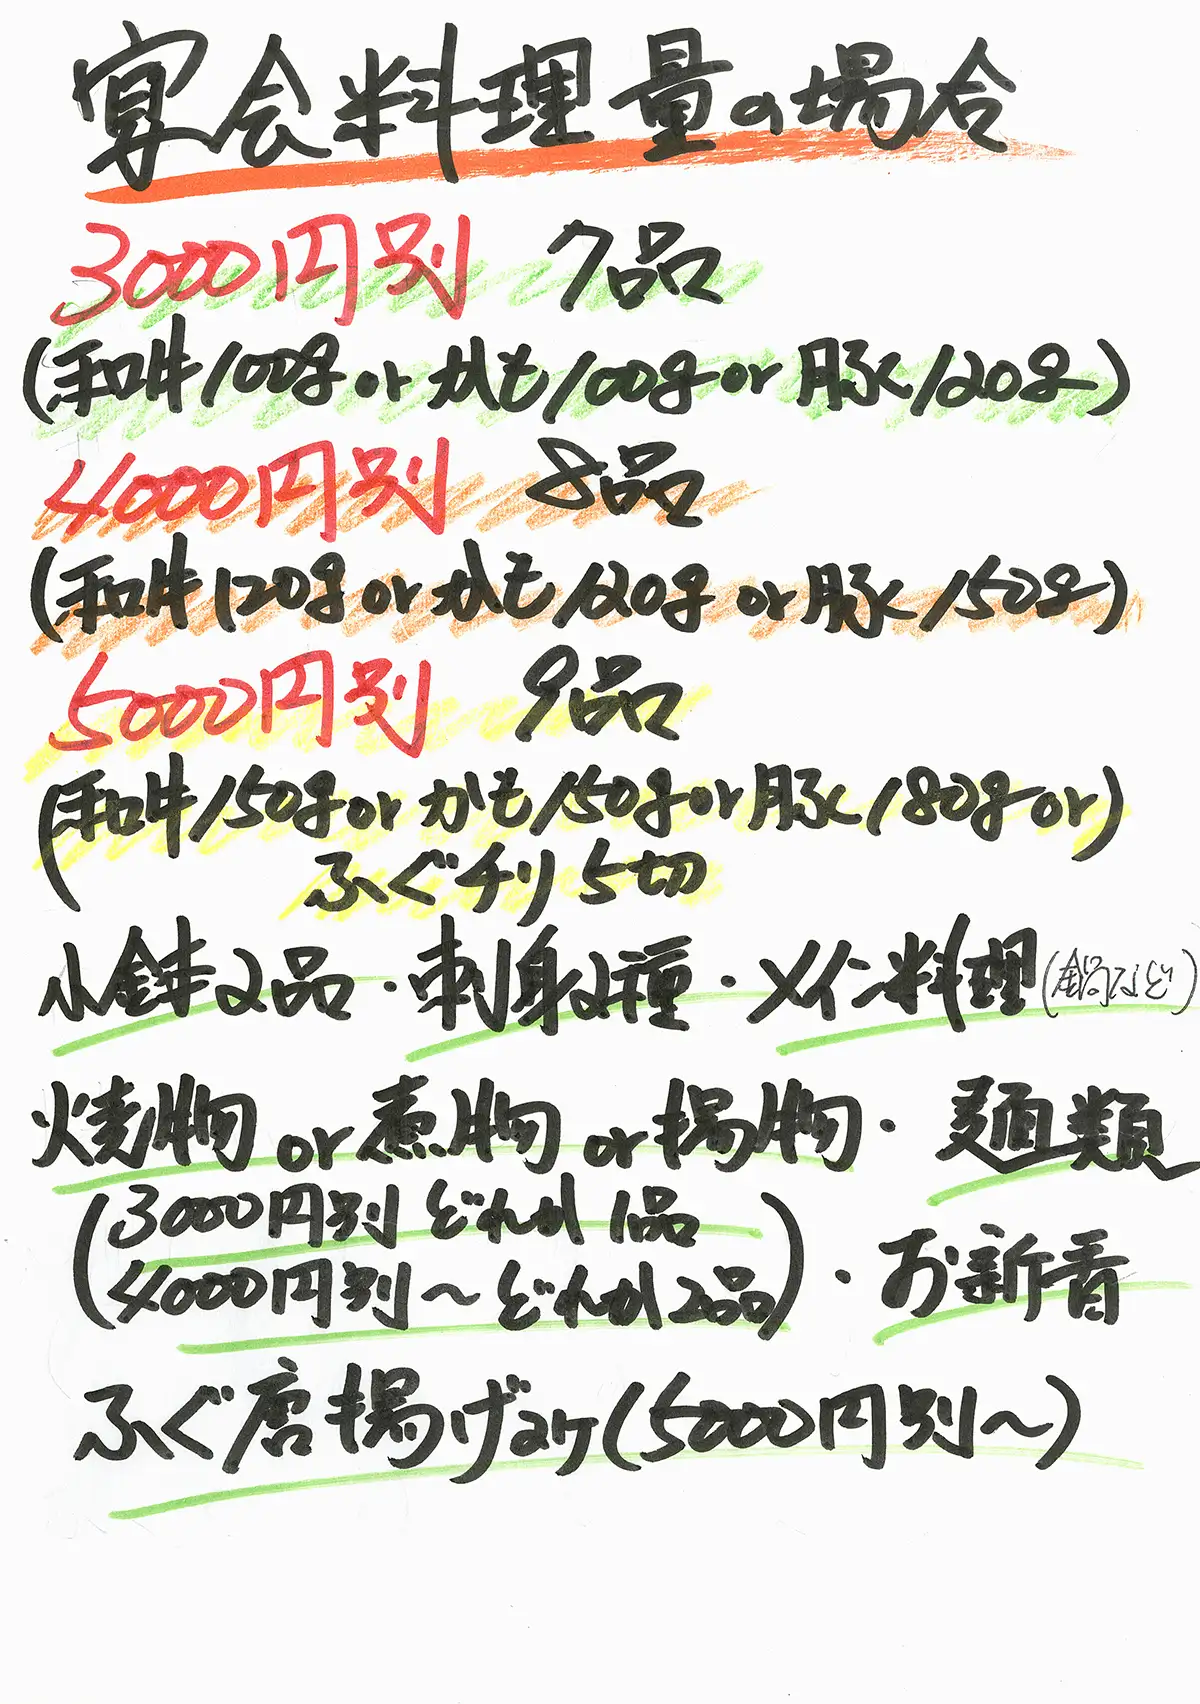 宴会料理量の場合
3000円別 7品
(和牛100g or かも100g or 豚120g)
4000円別 8品
(和牛120g or かも120g or 豚150g)
5000円別 9品
(和牛150g or かも150g or 豚180g or)
ふぐチリ5切
小鉢2品・刺身2種・メイン料理(鍋など)
焼物 or 煮物 or 揚物・麺類
(3000円別 どれか1品
4000円別〜どれか2品)・お新香
ふぐ唐揚げ2ケ(5000円別〜)